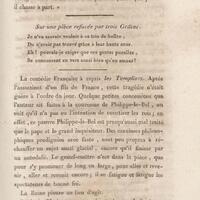 il chasse à part. »
Sur une pièce refusée par trois Grétins.
Je n'en saurais vouloir à ce trio de
De n'avoir pas trouvé grâce à leur haute
Eh ! pouvais-je exiger que ces pauvres pucelles,
Se connussent en vers aussi bien qu'en amour ?
La comédie Française a repris les Templiers. Après
l'assassinat d'un fils de France, cette tragédie n'était
guère à l'ordre du jour. Quelques petites concessions que
l'auteur ait faites à la couronne de Philippe-le-Bel, on
voit qu'il n'a pas eu l'intention de constituer les rois; en
effet, ce pauvre Philippe-le-Bel est presqu'aussi mal traité
que le pape et le grand inquisiteur. Des continues philoso-
phiques prodiguées sans choix, ne peuvent réchauffer
un sujet naturellement glacial, encore qu'il abonde
en Le grand-maître n'est dans la pièce, que
pour s'y promener de long en large, pour aller et reve-
nir, aller et revenir encore; il se fatigue et fatigue les
spectateurs de bonne foi.
La Reine pense un lieu d'agir.